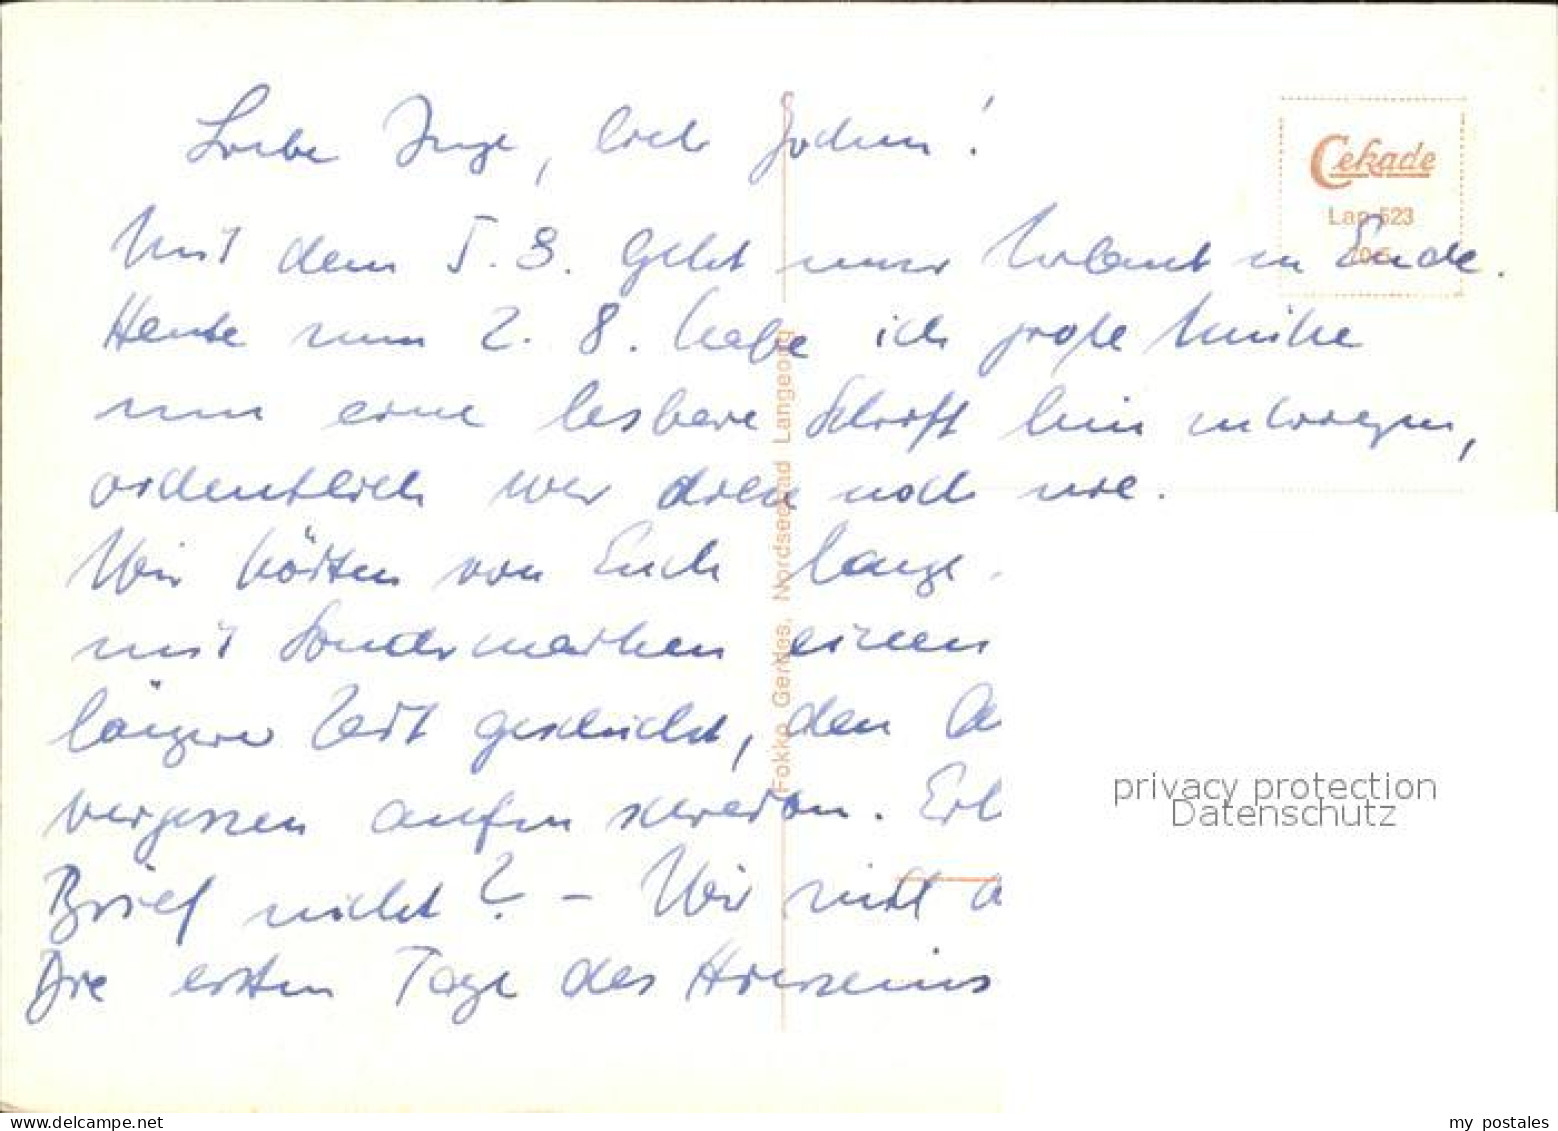 Liebe Inge, lieber Jochen!
Mit dem 5.8. geht unser Urlaub zu Ende.
Heute zum 2.8. habe ich große Mühe
nun eine lesbare Schrift hinzukriegen,
ordentlich war diese noch nie.
Wir hörten von Euch lange
mit Sondermarken einen
längerer Zeit geschickt, den
vergessen aufzuschreiben.
Brief nicht? - Wir sind
Die ersten Tage des Hierseins
Cekade
Lan 523
Fokko Gerdes, Nordseebad Langeoog
privacy protection
Datenschutz
my postales